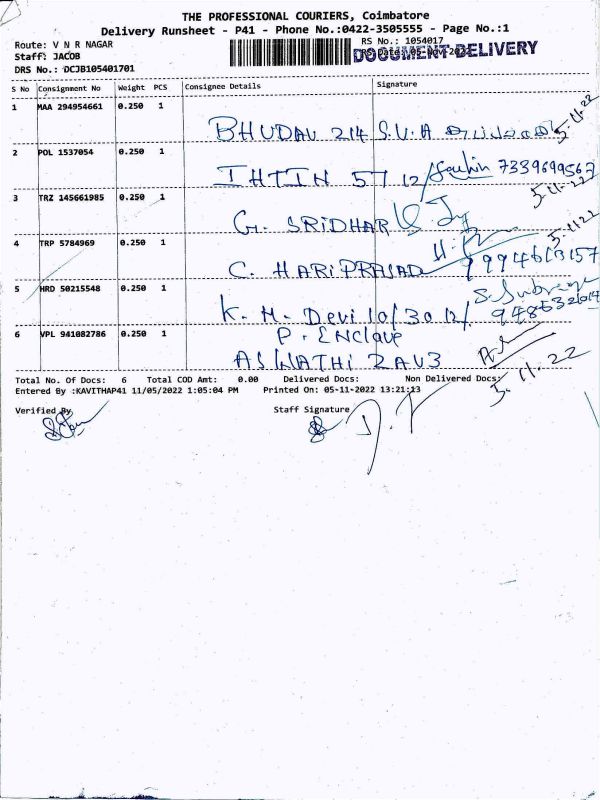 THE PROFESSIONAL COURIERS, Coimbatore
Delivery Runsheet - P41 - Phone No.:0422-3505555 - Page No.:1
Route: V N R NAGAR
RS No.: 1054017
Staff: JACOB
RS Date: 05-Nov-2022
DOCUMENT DELIVERY
DRS No.: DCJB105401701
S No Consignment No Weight PCS Consignee Details Signature
1 MAA 294954661 0.250 1
BHUDAV 214 S.V.A 5-11-22
2 POL 1537054 0.250 1
IHTIN 5712/ 7339699567
5-11-22
3 TRZ 145661985 0.250 1
G. SRIDHAR
4 TRP 5784969 0.250 1 5-11-22
C. HARIPRASAD 9994613157
5 HRD 50215548 0.250 1
K. M. Devi 10/30 12/
6 VPL 941082786 0.250 1 P. ENCLAVE
ASWATHI 2AV3
5.11.22
Total No. Of Docs: 6 Total COD Amt: 0.00 Delivered Docs: Non Delivered Docs:
Entered By :KAVITHAP41 11/05/2022 1:05:04 PM Printed On: 05-11-2022 13:21:13
Verified By Staff Signature